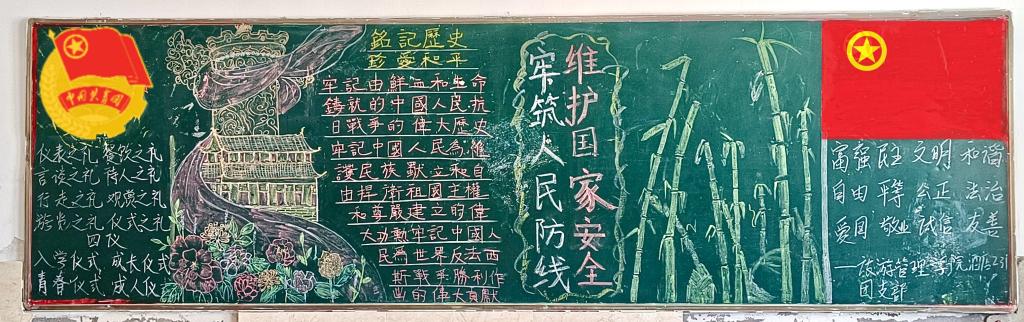 中国共青团
仪表之礼 餐饮之礼
言谈之礼 待人之礼
行走之礼 观赏之礼
游览之礼 仪式之礼
四仪
入学仪式 成长仪式
青春仪式 成人仪式
銘記歷史
珍愛和平
牢記由鮮血和生命
鑄就的中國人民抗
日戰爭的偉大歷史
牢記中國人民為維
護民族獨立和自
由捍衛祖國主權
和尊嚴建立的偉
大功勳牢記中國人
民為世界反法西
斯戰爭勝利作
出的偉大貢獻
维护国家安全
牢筑人民防线
富强 民主 文明 和谐
自由 平等 公正 法治
爱国 敬业 诚信 友善
——旅游管理学院酒店231
团支部